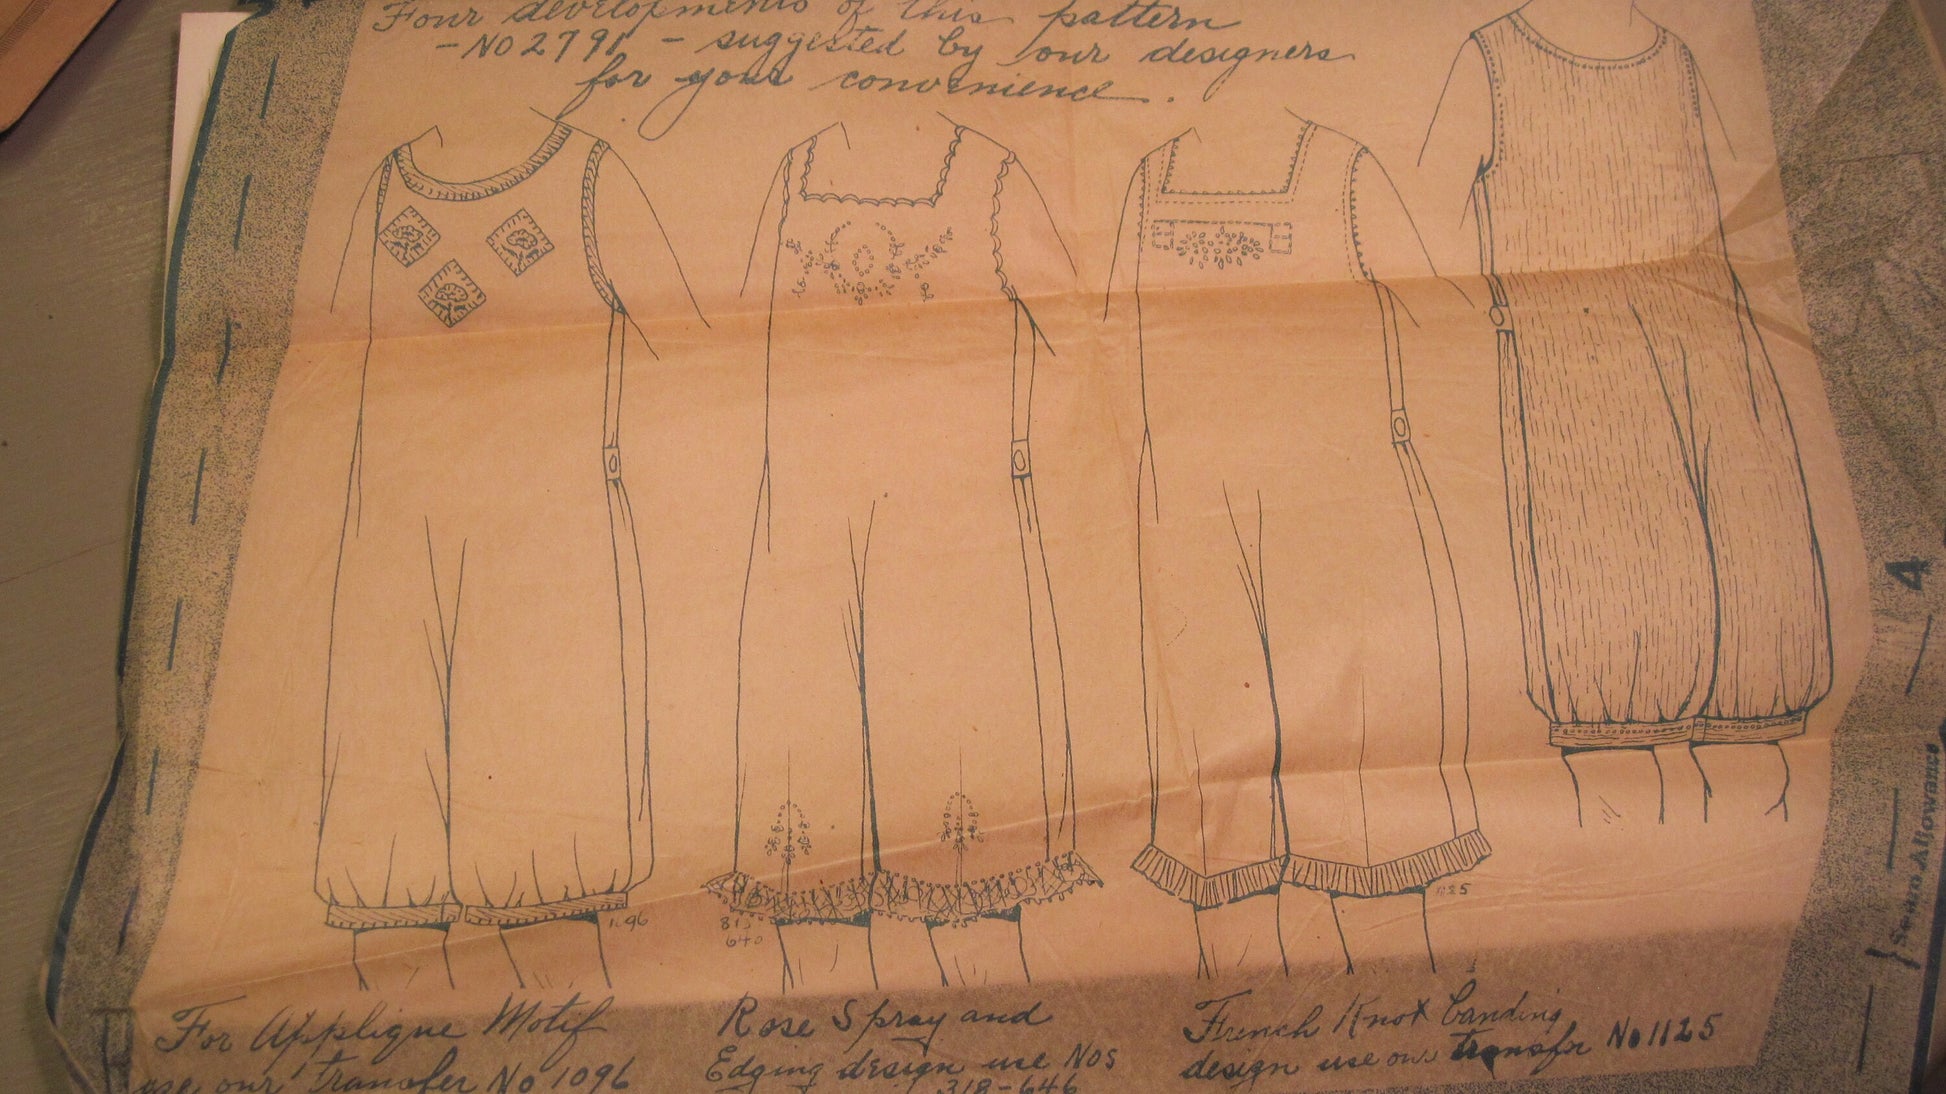 Four developments of this pattern
- No 2791 - suggested by our designers
for your convenience.
4
Seam Allowance
1096
640
1125
For Applique Motif
use our transfer No 1096
Rose Spray and
Edging design use Nos
318-646
French Knot banding
design use our transfer No 1125